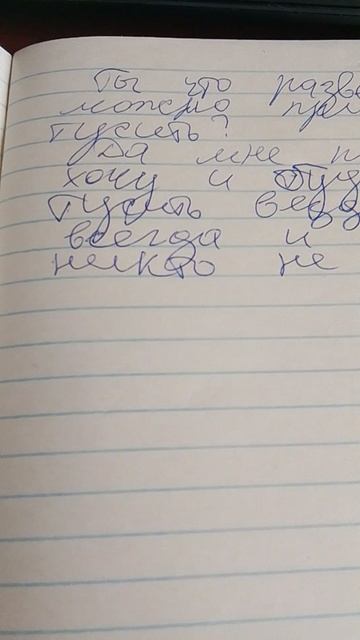 Ты что разве
можно при
тусить?
Да мне п
хочу и буду
тусить везд
всегда и
никто не